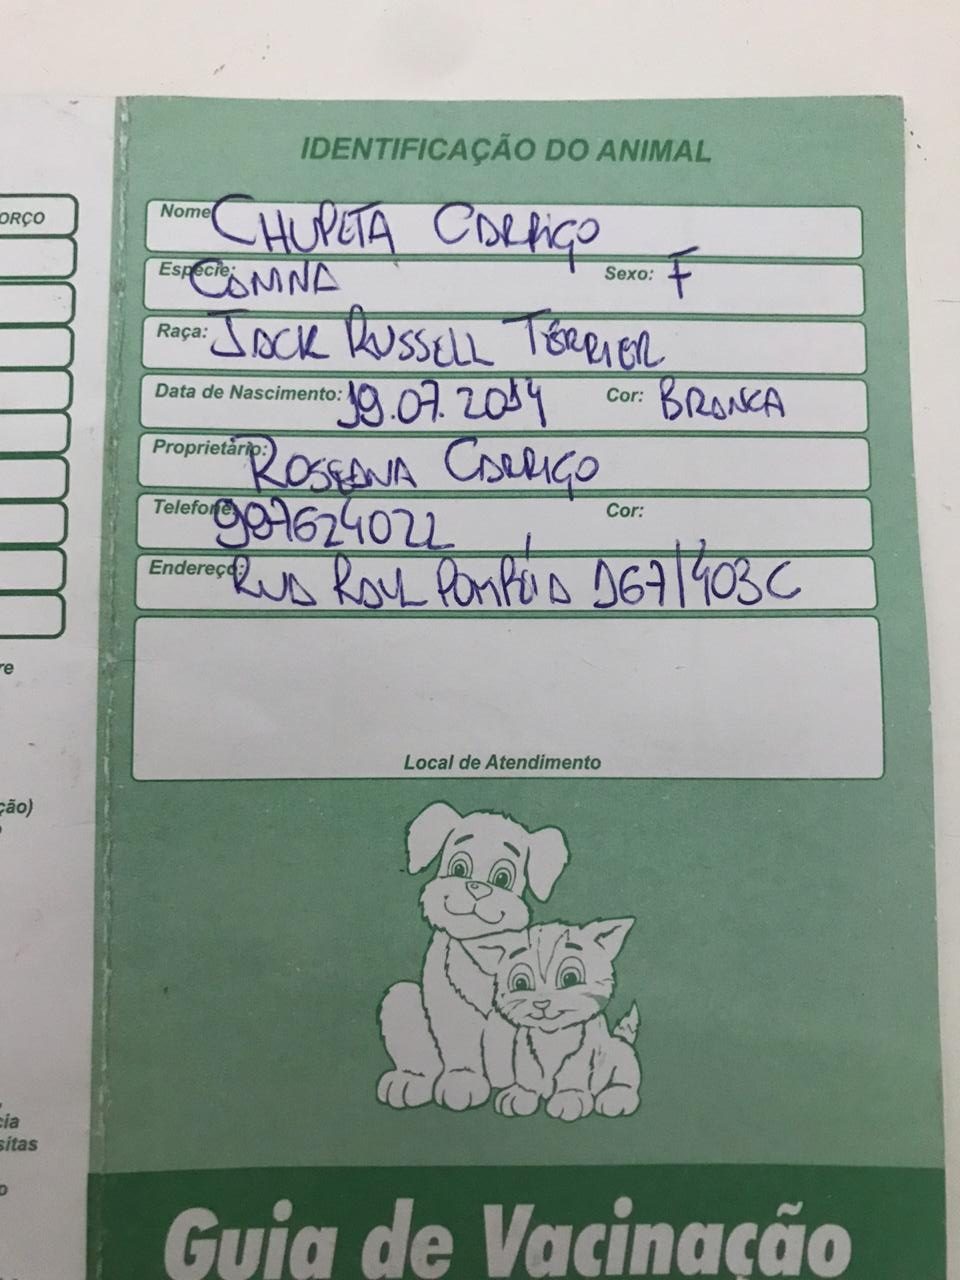 ORÇO
IDENTIFICAÇÃO DO ANIMAL
Nome: CHUPETA CARRIÇO
Espécie: CANINA Sexo: F
Raça: JACK RUSSELL TERRIER
Data de Nascimento: 19.07.2014 Cor: BRANCA
Proprietário: ROSEANA CARRIÇO
Telefone: 997624022 Cor:
Endereço: RUA RAUL POMPÉIA 167/403C
Local de Atendimento
re
ção)
cia
sitas
Guia de Vacinação